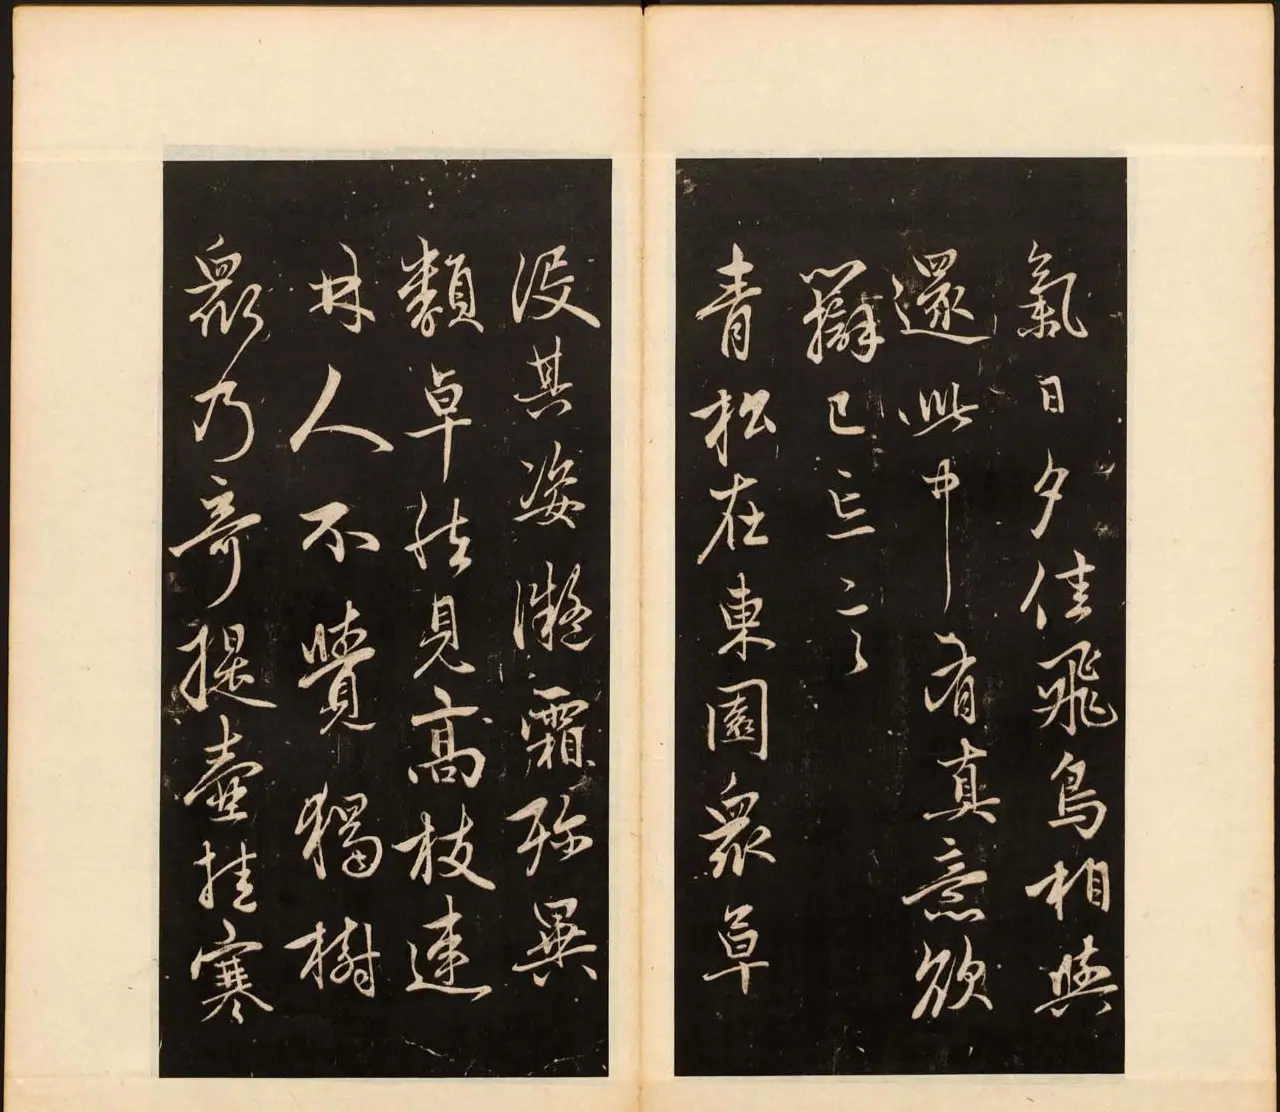 氣日夕佳飛鳥相與
還此中有真意欲
辯已忘言
青松在東園衆草
沒其姿凝霜殄異
類卓然見高枝連
林人不覺獨樹
衆乃奇提壺挂寒